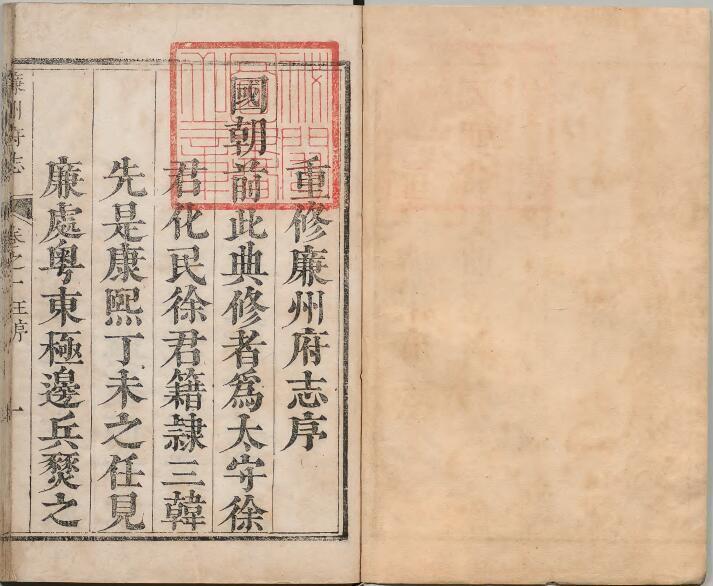 重修廉州府志序
國朝前此典修者爲太守徐
君化民徐君籍隷三韓
先是康熙丁未之任見
廉處粤東極邊兵燹之
廉州府志
卷之一
汪序
一